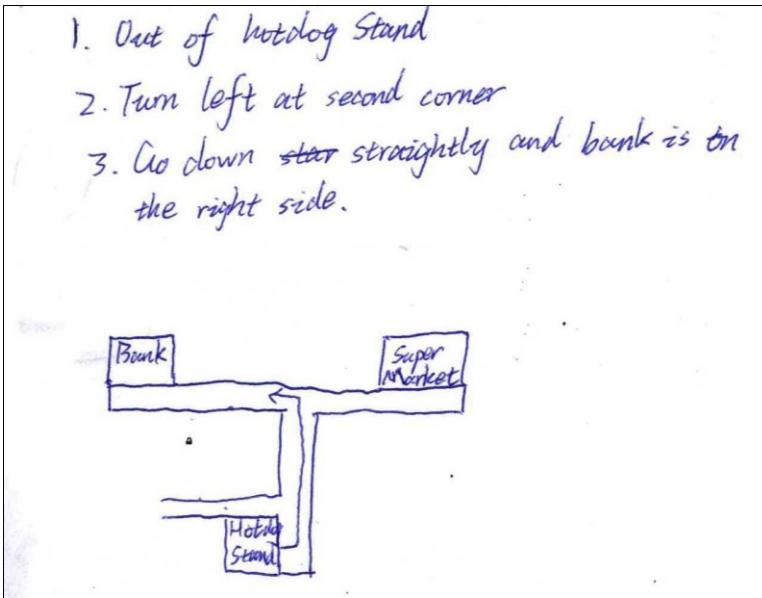 1. Out of hotdog Stand
2. Turn left at second corner
3. Go down straightly and bank is on
the right side.
Bank
Super
Market
Hotdog
Stand